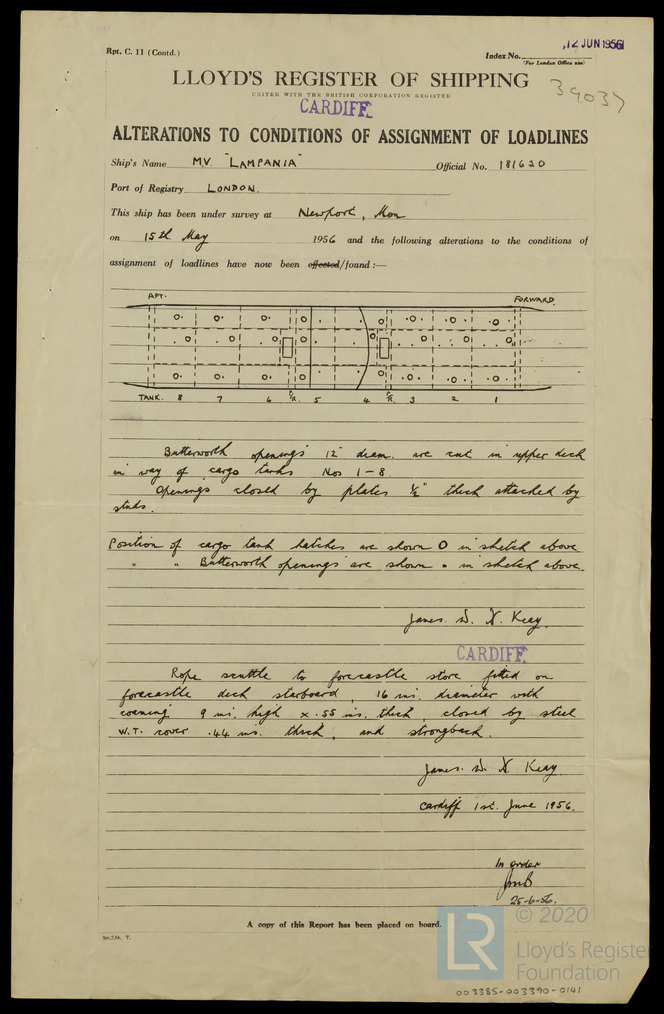 Rpt. C. 11 (Contd.)
12 JUN 1956
Index No.
(For London Office use)
LLOYD'S REGISTER OF SHIPPING
39037
UNITED WITH THE BRITISH CORPORATION REGISTER
CARDIFF
ALTERATIONS TO CONDITIONS OF ASSIGNMENT OF LOADLINES
Ship's Name M.V. "LAMPANIA" Official No. 181620
Port of Registry LONDON.
This ship has been under survey at Newport, Mon
on 15th May 1956 and the following alterations to the conditions of
assignment of loadlines have now been effected/found :—
AFT. FORWARD.
TANK. 8 7 6 P/R. 5 4 P/R. 3 2 1
Butterworth openings 12" diam. are cut in upper deck
in way of cargo tanks Nos 1 - 8
Openings closed by plates ½" thick attached by
studs.
Position of cargo tank hatches are shown O in sketch above
" " Butterworth openings are shown • in sketch above.
James. D. N. Keay.
CARDIFF
Rope scuttle to forecastle store fitted on
forecastle deck starboard, 16 ins. diameter with
coaming 9 ins. high x .55 ins. thick closed by steel
W.T. cover .44 ins. thick, and strongback.
James. D. N. Keay
Cardiff 1st. June 1956.
In order
25-6-56.
A copy of this Report has been placed on board.
© 2020
LR
Lloyd's Register
Foundation
003385-003390-0141